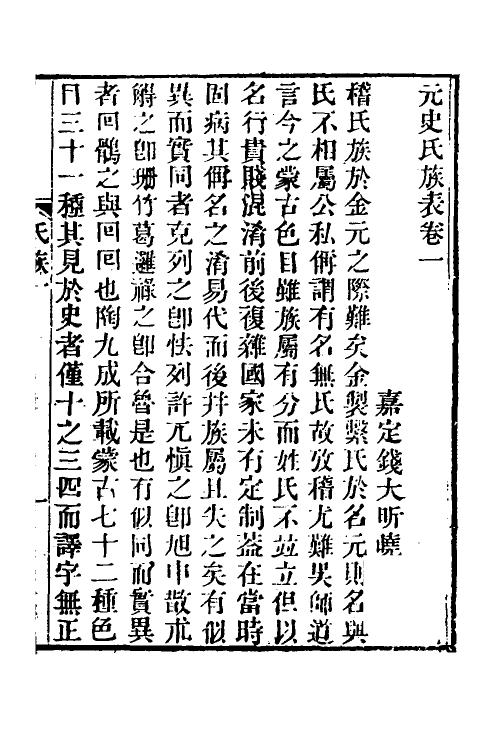 元史氏族表卷一
嘉定錢大昕䜟
稽氏族於金元之際難矣金製繫氏於名元則名與
氏不相屬公私偁謂有名無氏故攷稽尤難吳師道
言今之蒙古色目雖族屬有分而姓氏不竝立但以
名行貴賤混淆前後複雜國家未有定制葢在當時
固病其偁名之淆易代而後幷族屬且失之矣有似
異而實同者克列之卽怯列許兀愼之卽旭申散朮
䚟之卽珊竹葛邏祿之卽合魯是也有似同而實異
者回鶻之與回回也陶九成所載蒙古七十二種色
目三十一種其見於史者僅十之三四而譯字無正
氏族一